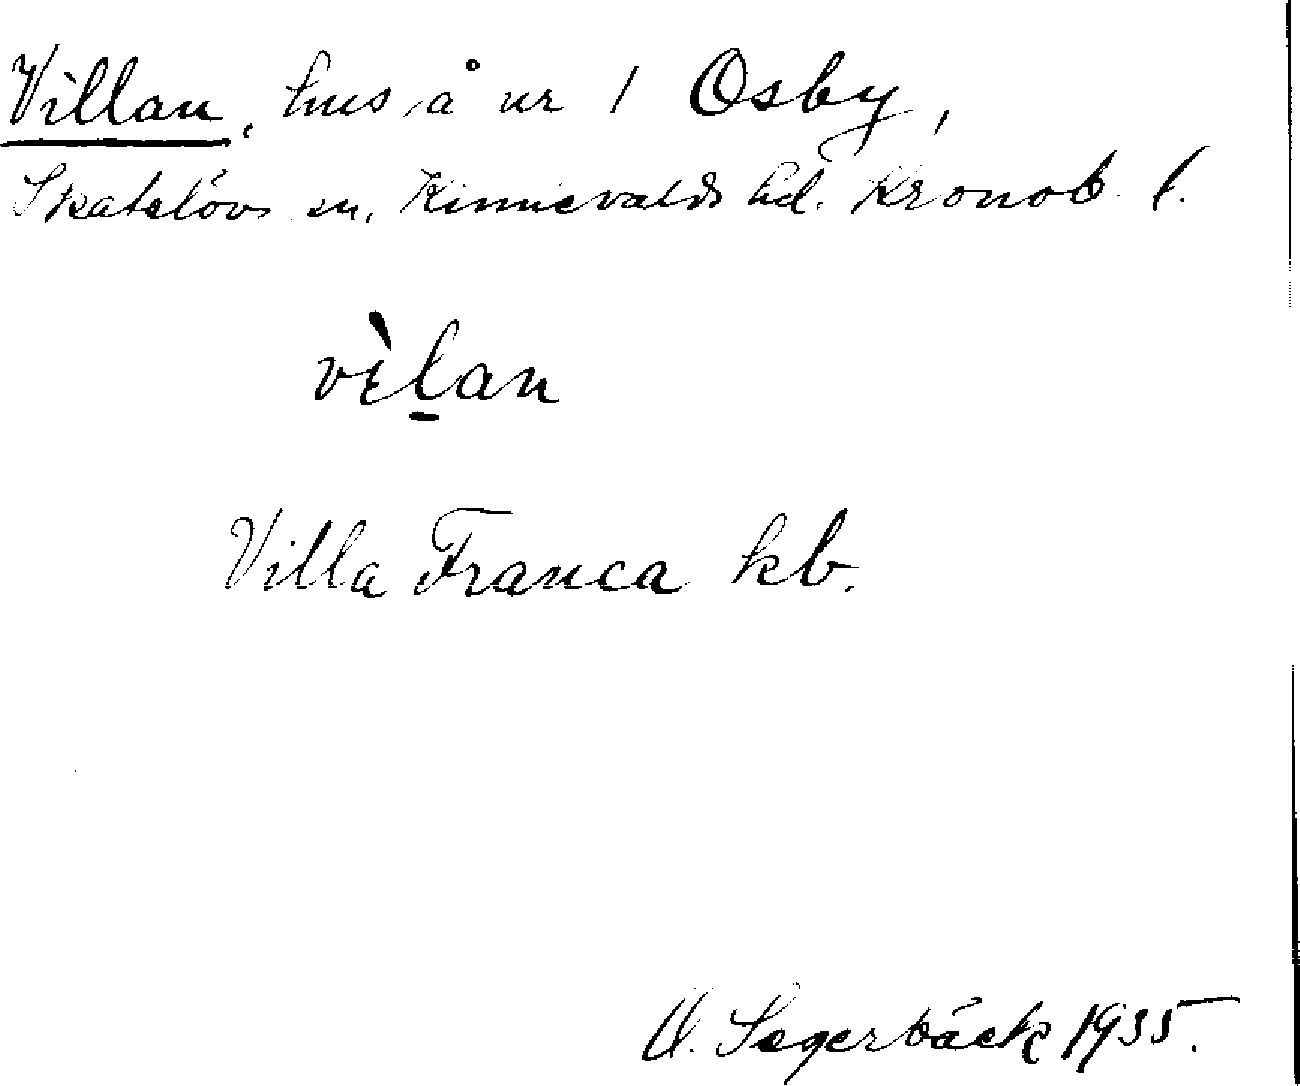 Villan, hus å nr 1 Osby,
Skatelövs sn, Kinnevalds hd. Kronob. l.
vɛ̀l̠an
Villa Franca kb.
O. Segerbäck 1935.